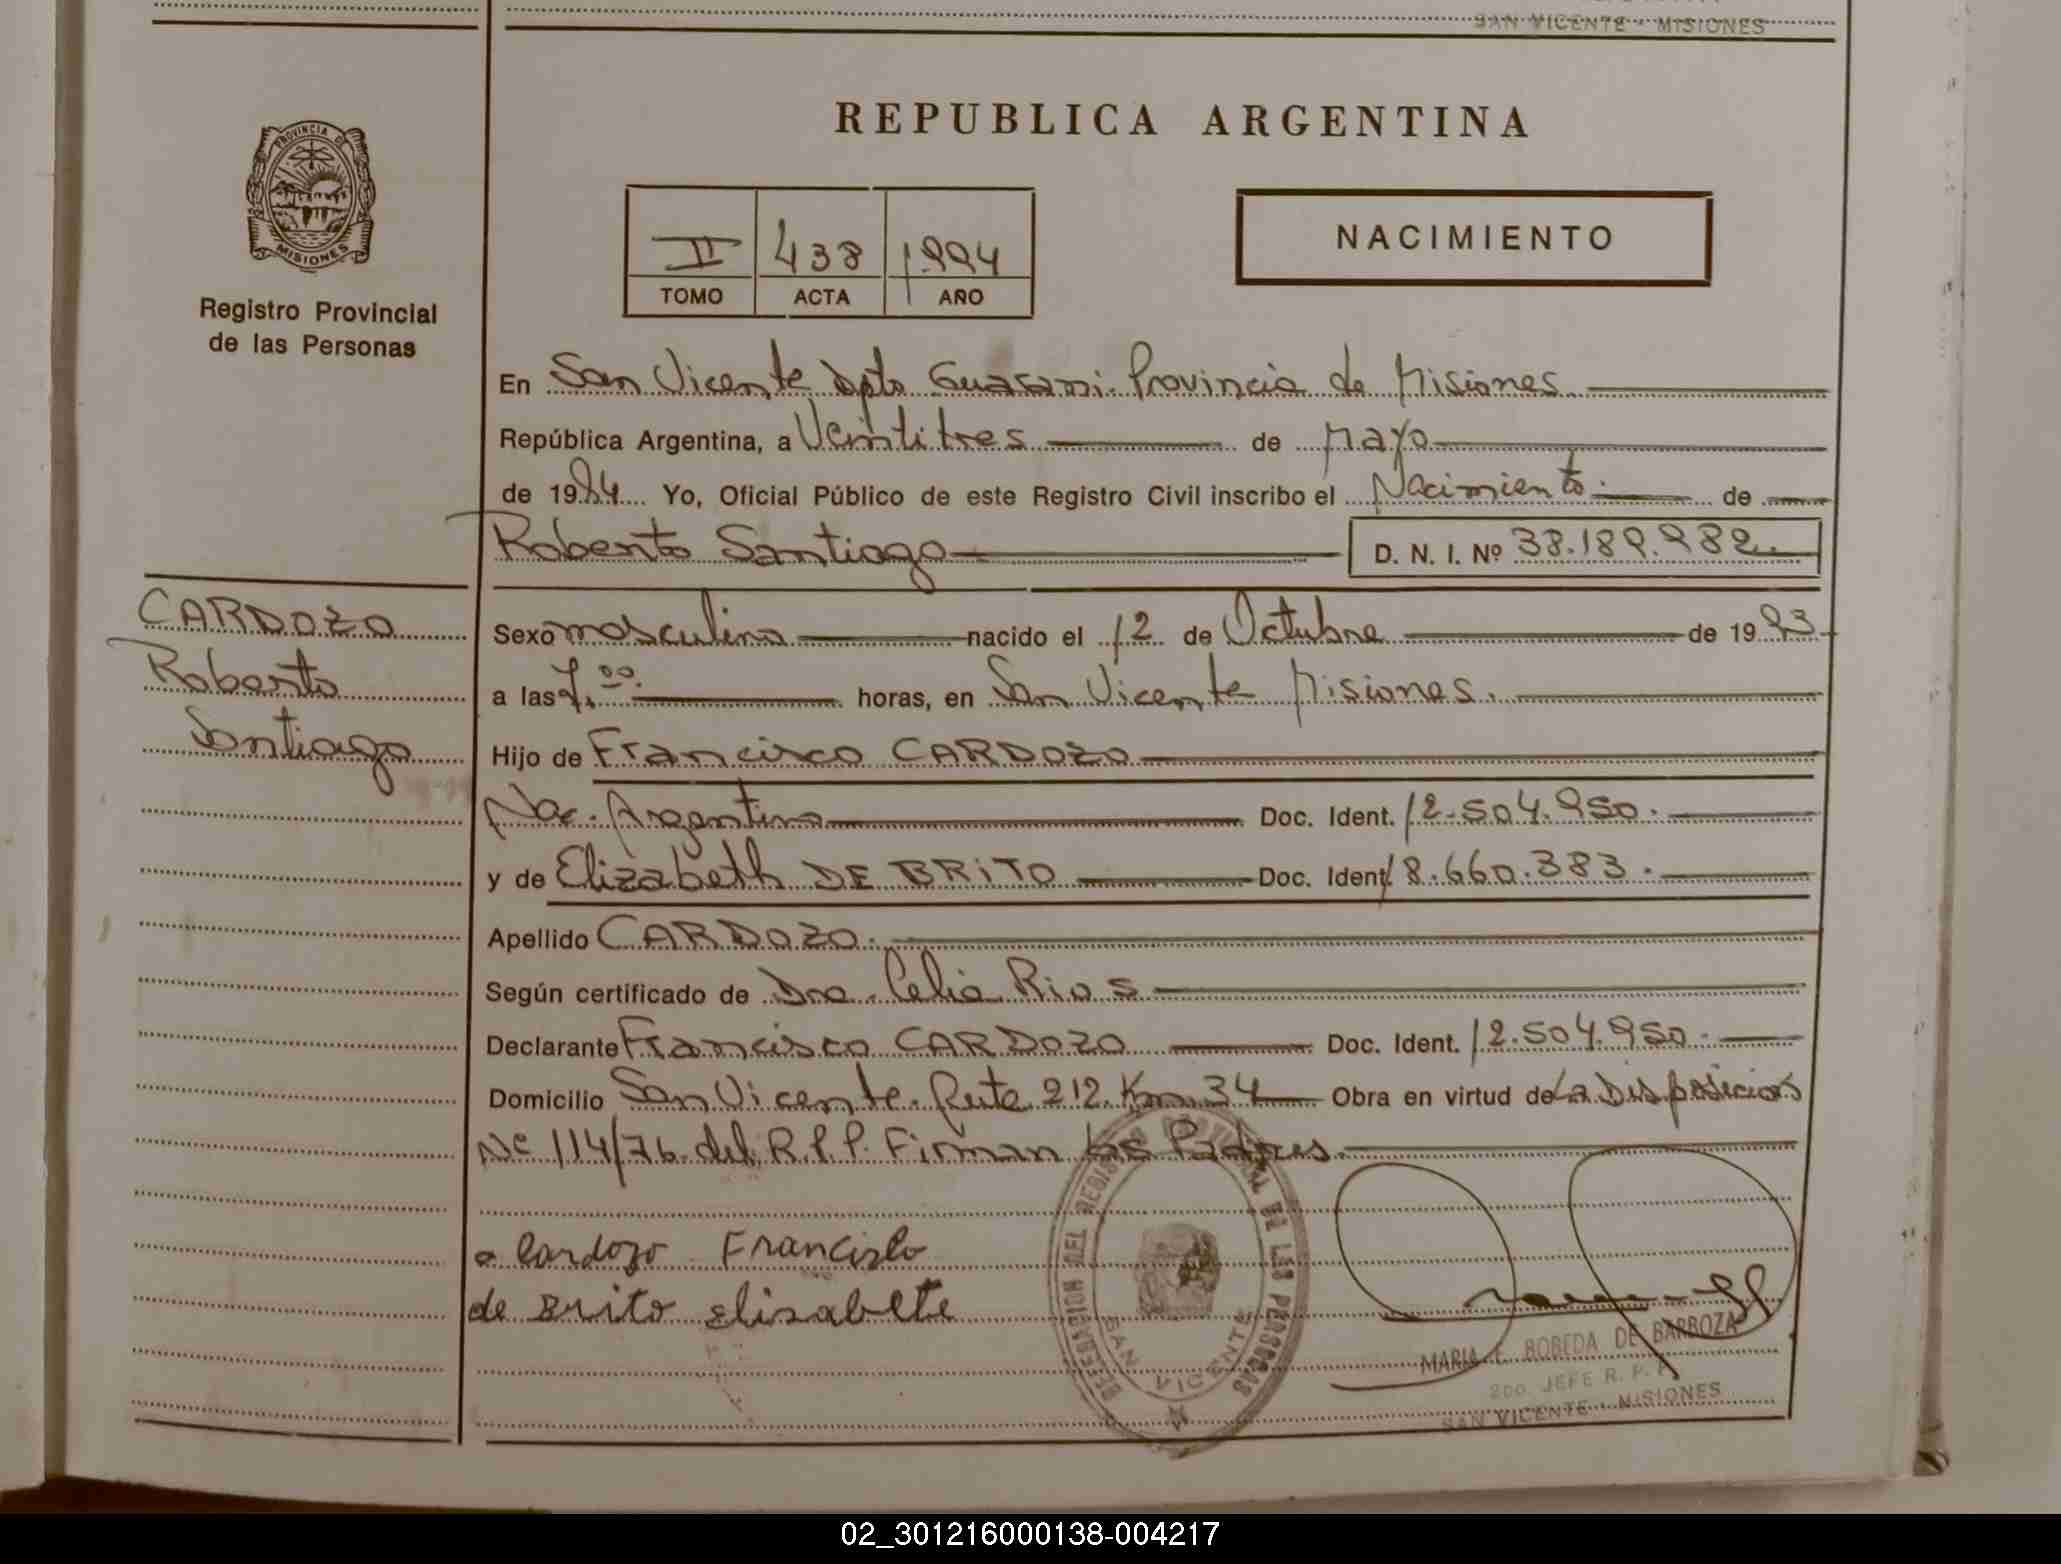 SAN VICENTE - MISIONES
REPUBLICA ARGENTINA
PROVINCIA DE
MISIONES
Registro Provincial
de las Personas
II 438 1994
TOMO ACTA AÑO
NACIMIENTO
En San Vicente Dpto Guarani. Provincia de Misiones
República Argentina, a Veintitres de Mayo
de 1994 Yo, Oficial Público de este Registro Civil inscribo el Nacimiento. de
Roberto Santiago D. N. I. Nº 38.189.982
CARDOZO
Roberto
Santiago
Sexo masculino nacido el 12 de Octubre de 1993
a las 7.00 horas, en San Vicente Misiones.
Hijo de Francisco CARDOZO
Nac. Argentina Doc. Ident. 12.504.950.
y de Elizabeth DE BRITO Doc. Ident. 18.660.383.
Apellido CARDOZO.
Según certificado de Dra. Celia Rios
Declarante Francisco CARDOZO Doc. Ident. 12.504.950.
Domicilio San Vicente. Ruta 212 Km 34 Obra en virtud de La Disposicion
Nº 114/76 del R.P.P. Firman los Padres.
Cardozo Francisco
de Brito Elisabete
DELEGACION DEL REGISTRO PROVINCIAL DE LAS PERSONAS
SAN VICENTE
MARIA E. BOBEDA DE BARBOZA
2DO. JEFE R. P. P.
SAN VICENTE - MISIONES
02_301216000138-004217